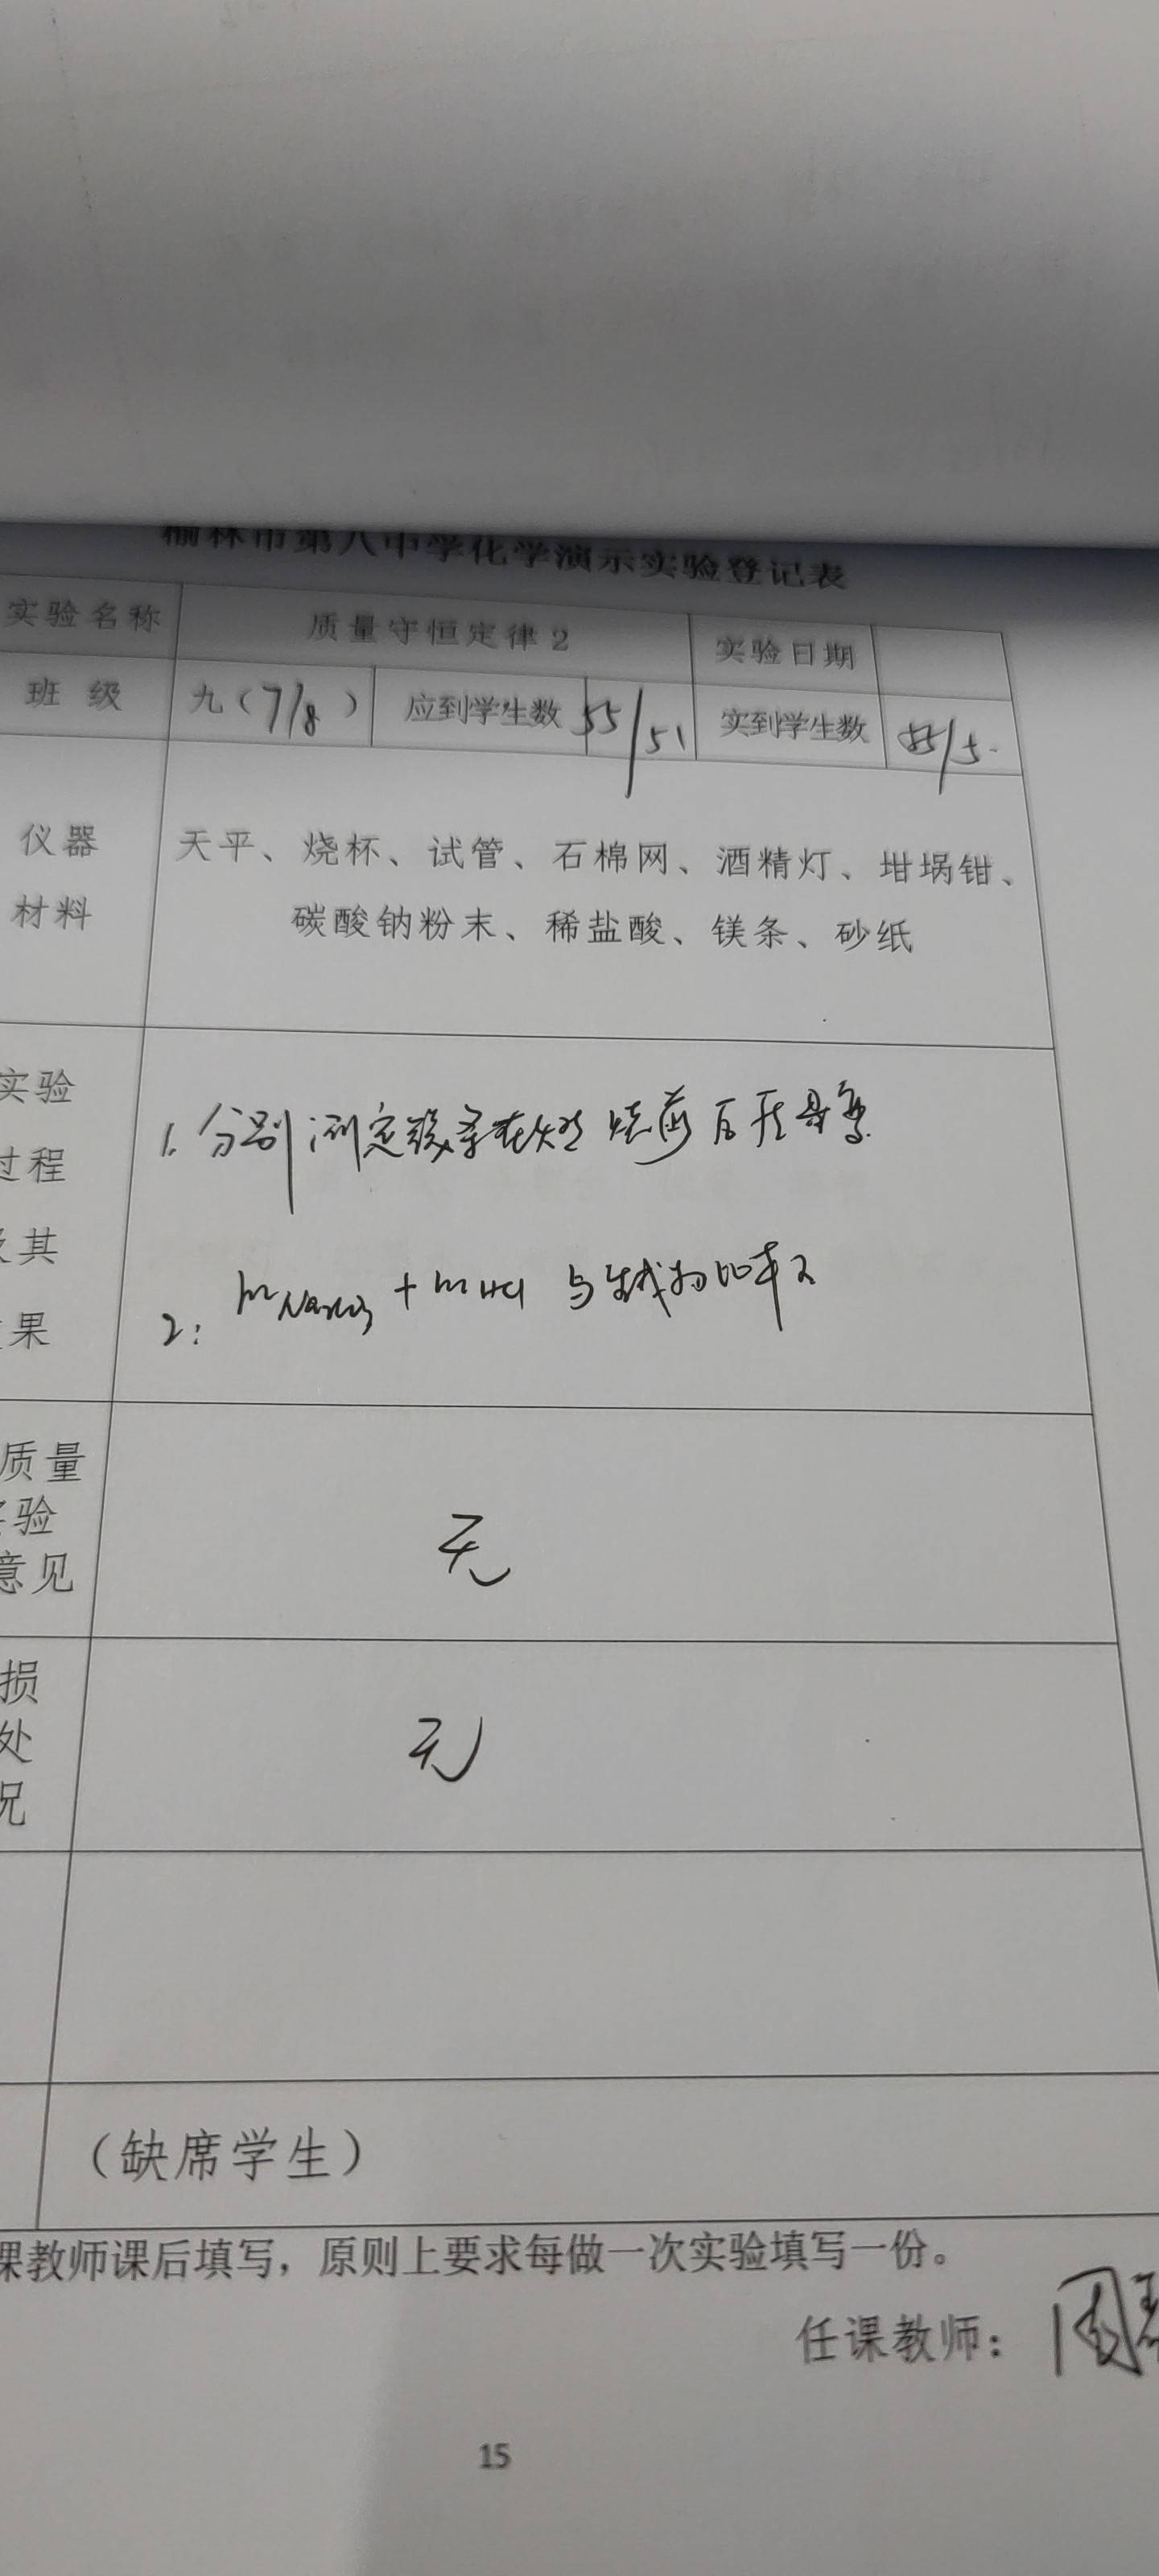 榆林市第八中学化学演示实验登记表
实验名称 质量守恒定律2 实验日期
班 级 九(7/8) 应到学生数 55/51 实到学生数 55/5
仪器 天平、烧杯、试管、石棉网、酒精灯、坩埚钳、
材料 碳酸钠粉末、稀盐酸、镁条、砂纸
实验
过程
及其
结果
1. 分别测定镁条在燃烧前后质量
2: mNa2CO3 + mHCl 与生成物
质量
实验
意见
无
损
处
况
无
(缺席学生)
课教师课后填写，原则上要求每做一次实验填写一份。
任课教师：周
15